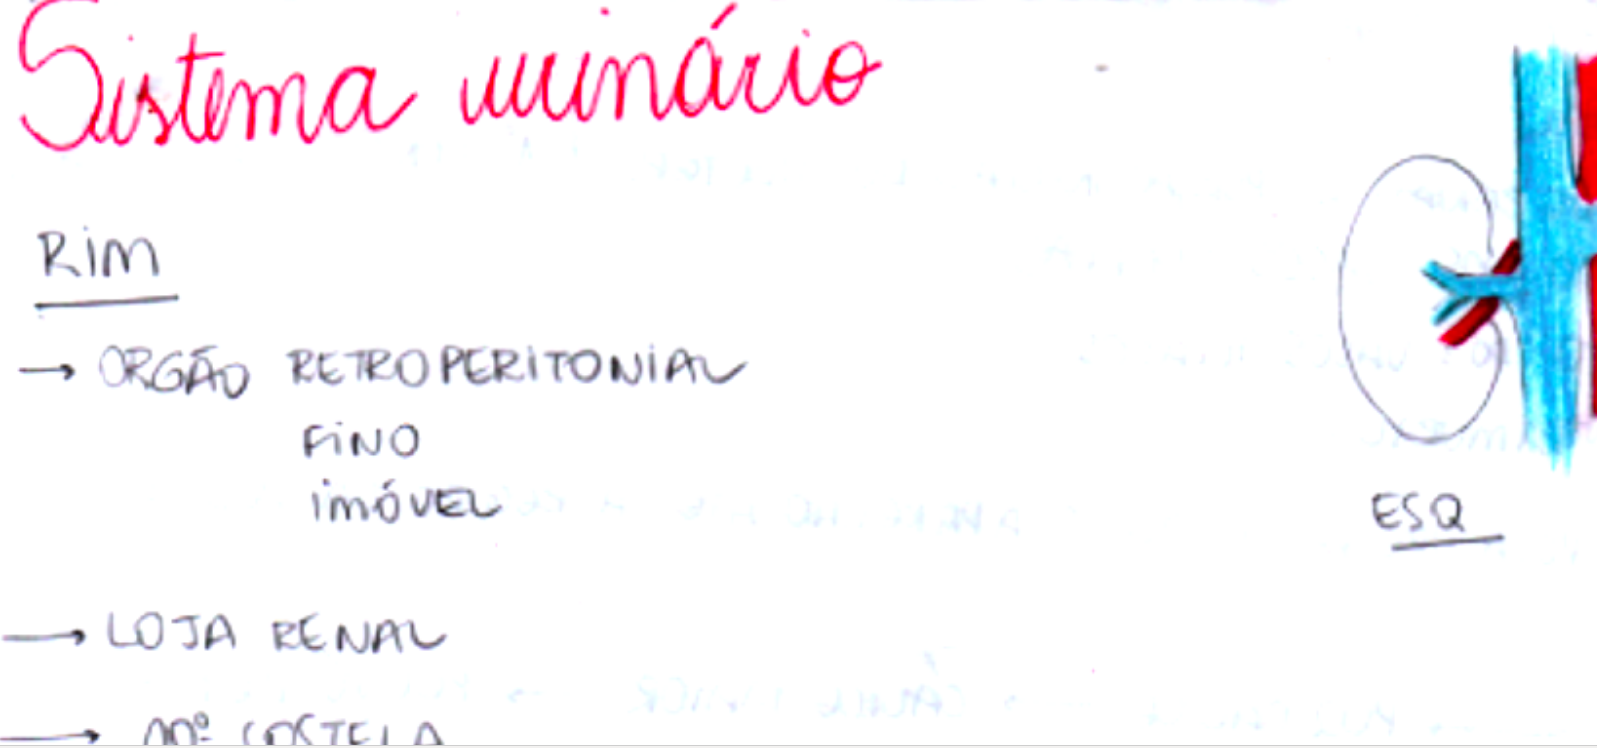 Sistema urinário
Rim
→ ORGÃO RETROPERITONIAL
FiNO
imóVEL
ESQ
→ LOJA RENAL
→ COSTELA